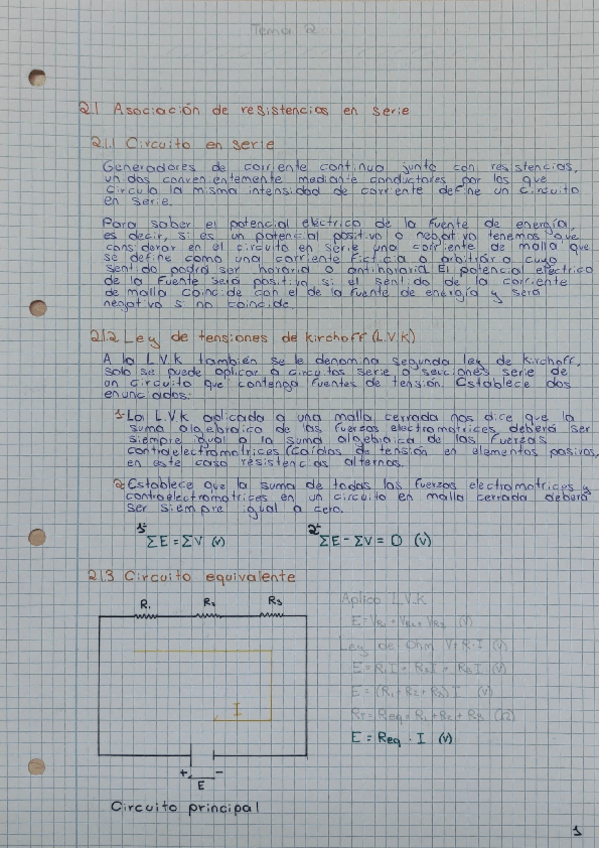 Tema 2
2.1 Asociación de resistencias en serie
2.1.1 Circuito en serie
Generadores de corriente continua junto con resistencias,
unidos convenientemente mediante conductores por los que
circula la misma intensidad de corriente define un circuito
en serie.
Para saber el potencial eléctrico de la fuente de energía,
es decir, si es un potencial positivo o negativo tenemos que
considerar en el circuito en serie una corriente de malla que
se define como una corriente ficticia o arbitraria cuyo
sentido podrá ser horario o antihorario. El potencial eléctrico
de la fuente será positivo si el sentido de la corriente
de malla coincide con el de la fuente de energía y será
negativo si no coincide.
2.1.2 Ley de tensiones de Kirchoff (L.V.K)
A la L.V.K también se le denomina segunda ley de Kirchoff,
solo se puede aplicar a circuitos serie o secciones serie de
un circuito que contenga fuentes de tensión. Establece dos
enunciados:
1º La L.V.K aplicada a una malla cerrada nos dice que la
suma algebraica de las fuerzas electromotrices deberá ser
siempre igual a la suma algebraica de las fuerzas
contraelectromotrices (caídas de tensión en elementos pasivos,
en este caso resistencias alternas.
2º Establece que la suma de todas las fuerzas electromotrices y
contraelectromotrices en un circuito en malla cerrada deberá
ser siempre igual a cero.
1º ΣE = ΣV (V) 2º ΣE - ΣV = 0 (V)
2.1.3 Circuito equivalente
R₁ R₂ R₃
I
+ -
E
Circuito principal
Aplico L.V.K
E = VR₁ + VR₂ + VR₃ (V)
Ley de Ohm V = R · I (V)
E = R₁I + R₂I + R₃I (V)
E = (R₁ + R₂ + R₃) I (V)
RT = Req = R₁ + R₂ + R₃ (Ω)
E = Req · I (V)
1